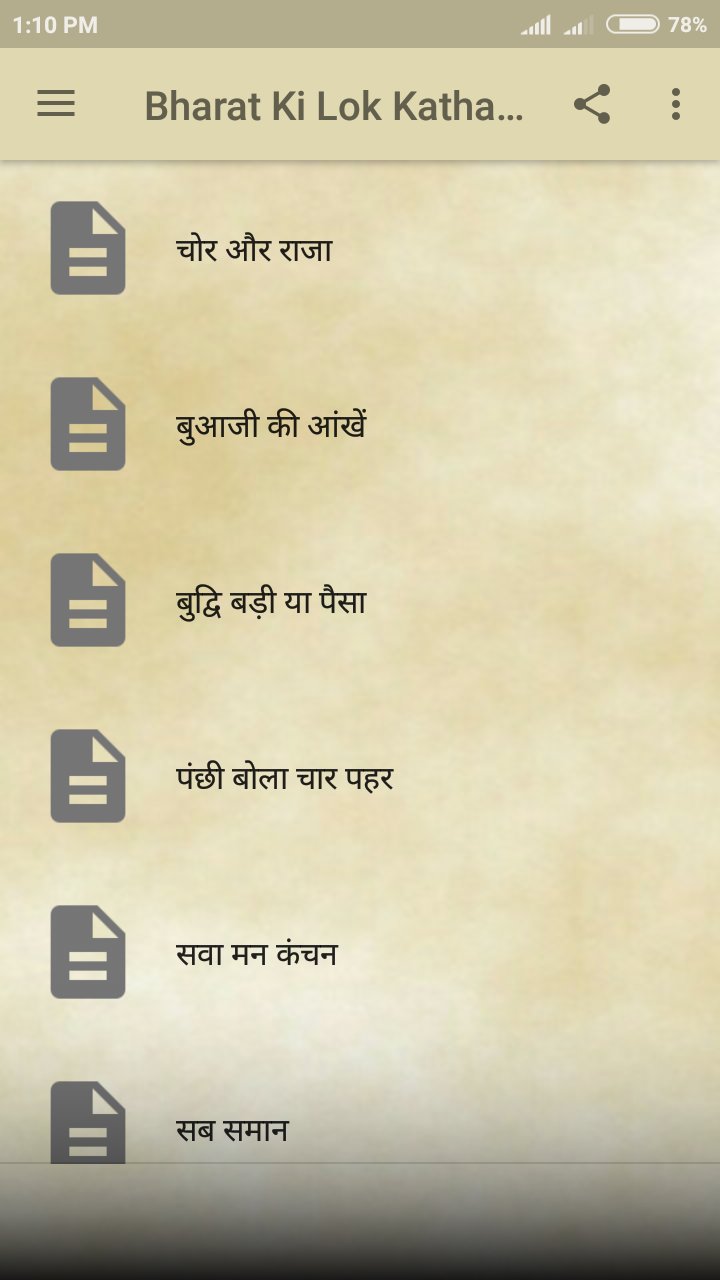 1:10 PM
78%
Bharat Ki Lok Katha...
चोर और राजा
बुआजी की आंखें
बुद्वि बड़ी या पैसा
पंछी बोला चार पहर
सवा मन कंचन
सब समान